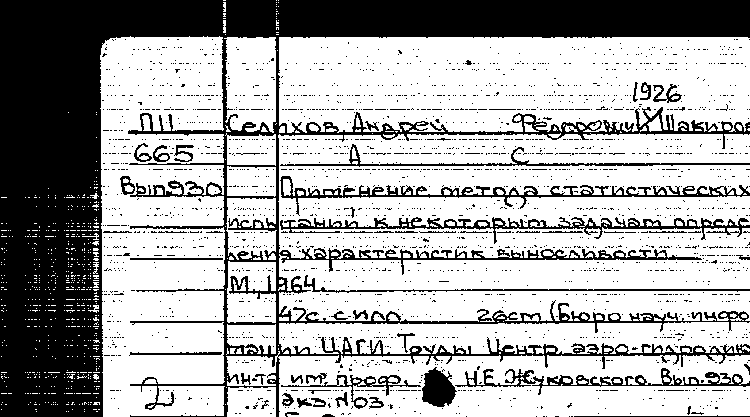 1926
П11 Селихов, Андрей Фёдорович Шакиров
665 А С
Вып.930 Применение метода статистических
испытаний к некоторым задачам опреде
ления характеристик выносливости.
М., 1964.
47с. с илл. 26см (Бюро науч. инфо
мации ЦАГИ. Труды Центр. аэро-гидродин
ин-та им. проф. Н.Е. Жуковского. Вып.930)
2 Экз. №03.